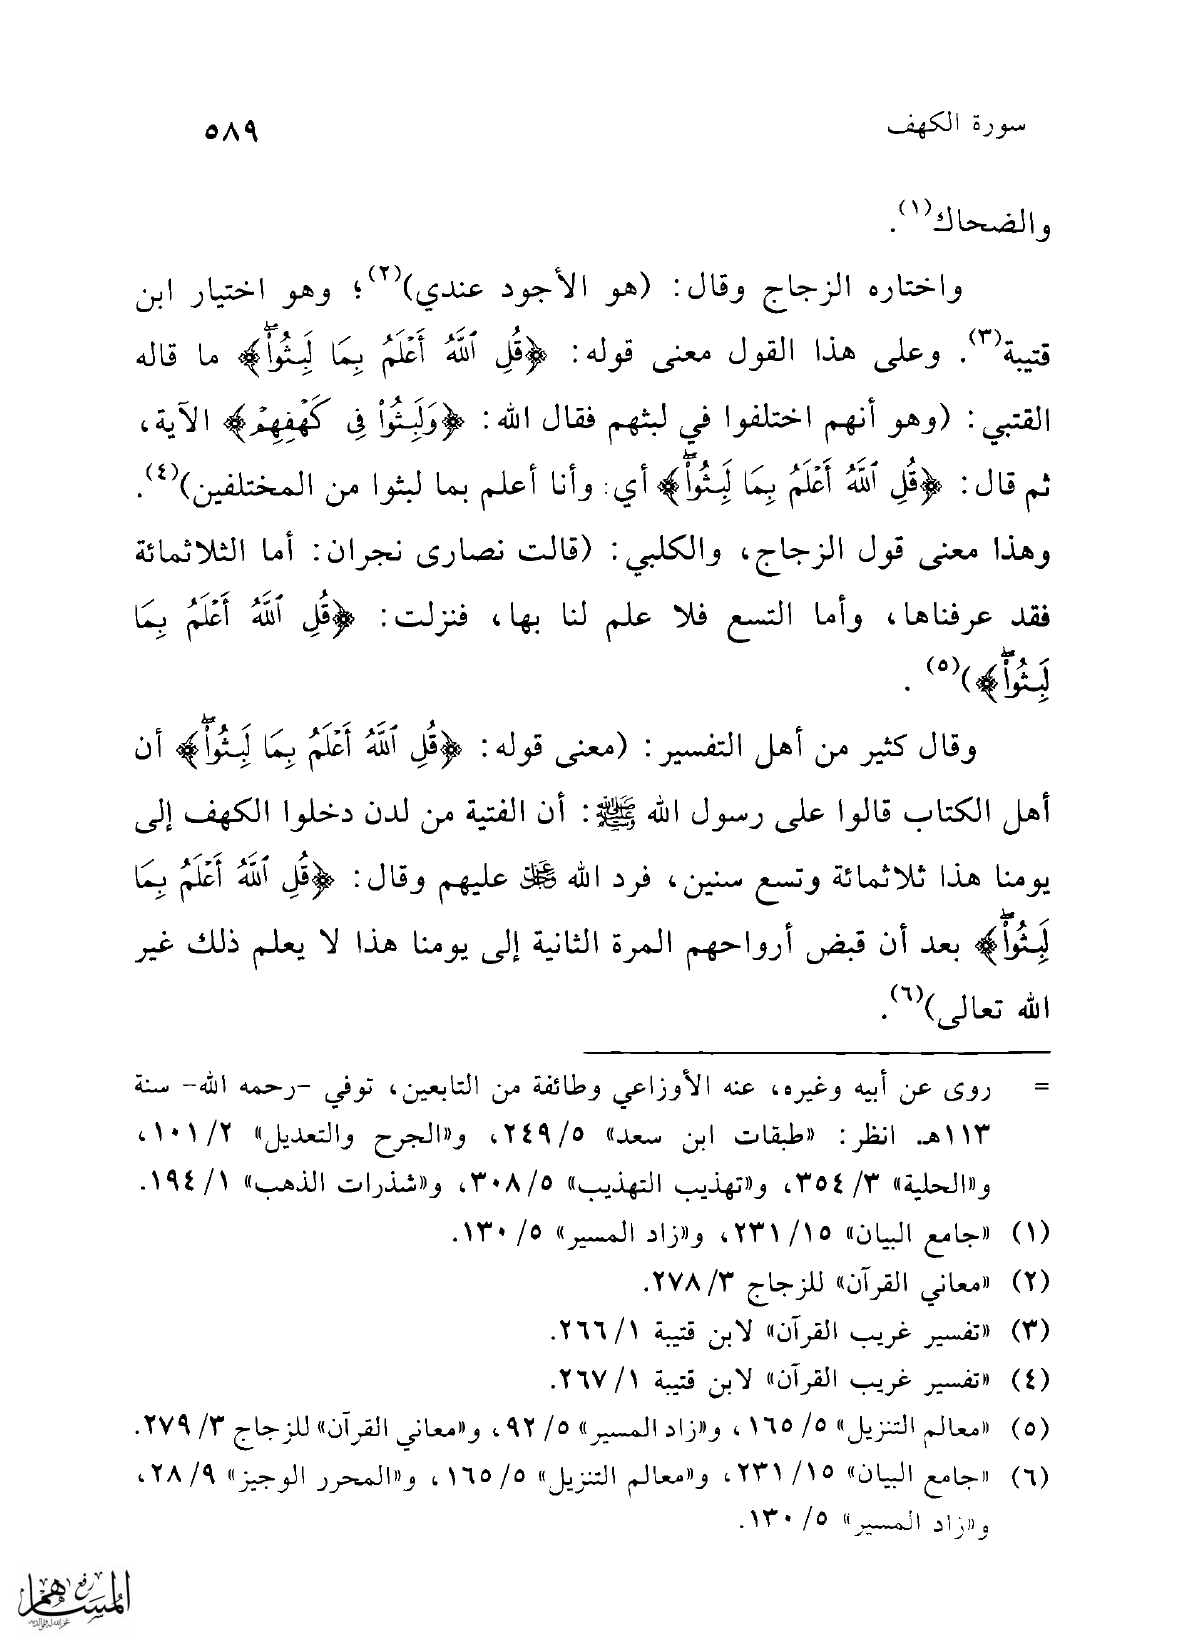 سورة الكهف
٥٨٩
والضحاك(١).
واختاره الزجاج وقال: (هو الأجود عندي)(٢)؛ وهو اختيار ابن
قتيبة(٣). وعلى هذا القول معنى قوله: ﴿قُلِ ٱللَّهُ أَعْلَمُ بِمَا لَبِثُوا۟ۖ﴾ ما قاله
القتبي: (وهو أنهم اختلفوا في لبثهم فقال الله: ﴿وَلَبِثُوا۟ فِى كَهْفِهِمْ﴾ الآية،
ثم قال: ﴿قُلِ ٱللَّهُ أَعْلَمُ بِمَا لَبِثُوا۟ۖ﴾ أي: وأنا أعلم بما لبثوا من المختلفين)(٤).
وهذا معنى قول الزجاج، والكلبي: (قالت نصارى نجران: أما الثلاثمائة
فقد عرفناها، وأما التسع فلا علم لنا بها، فنزلت: ﴿قُلِ ٱللَّهُ أَعْلَمُ بِمَا
لَبِثُوا۟ۖ﴾)(٥) .
وقال كثير من أهل التفسير: (معنى قوله: ﴿قُلِ ٱللَّهُ أَعْلَمُ بِمَا لَبِثُوا۟ۖ﴾ أن
أهل الكتاب قالوا على رسول الله ﷺ: أن الفتية من لدن دخلوا الكهف إلى
يومنا هذا ثلاثمائة وتسع سنين، فرد الله عز وجل عليهم وقال: ﴿قُلِ ٱللَّهُ أَعْلَمُ بِمَا
لَبِثُوا۟ۖ﴾ بعد أن قبض أرواحهم المرة الثانية إلى يومنا هذا لا يعلم ذلك غير
الله تعالى)(٦).
= روى عن أبيه وغيره، عنه الأوزاعي وطائفة من التابعين، توفي -رحمه الله- سنة
١١٣هـ. انظر: «طبقات ابن سعد» ٥/ ٢٤٩، و«الجرح والتعديل» ٢/ ١٠١،
و«الحلية» ٣/ ٣٥٤، و«تهذيب التهذيب» ٥/ ٣٠٨، و«شذرات الذهب» ١/ ١٩٤.
(١) «جامع البيان» ١٥/ ٢٣١، و«زاد المسير» ٥/ ١٣٠.
(٢) «معاني القرآن» للزجاج ٣/ ٢٧٨.
(٣) «تفسير غريب القرآن» لابن قتيبة ١/ ٢٦٦.
(٤) «تفسير غريب القرآن» لابن قتيبة ١/ ٢٦٧.
(٥) «معالم التنزيل» ٥/ ١٦٥، و«زاد المسير» ٥/ ٩٢، و«معاني القرآن» للزجاج ٣/ ٢٧٩.
(٦) «جامع البيان» ١٥/ ٢٣١، و«معالم التنزيل» ٥/ ١٦٥، و«المحرر الوجيز» ٩/ ٢٨،
و«زاد المسير» ٥/ ١٣٠.
رفع
المساهم